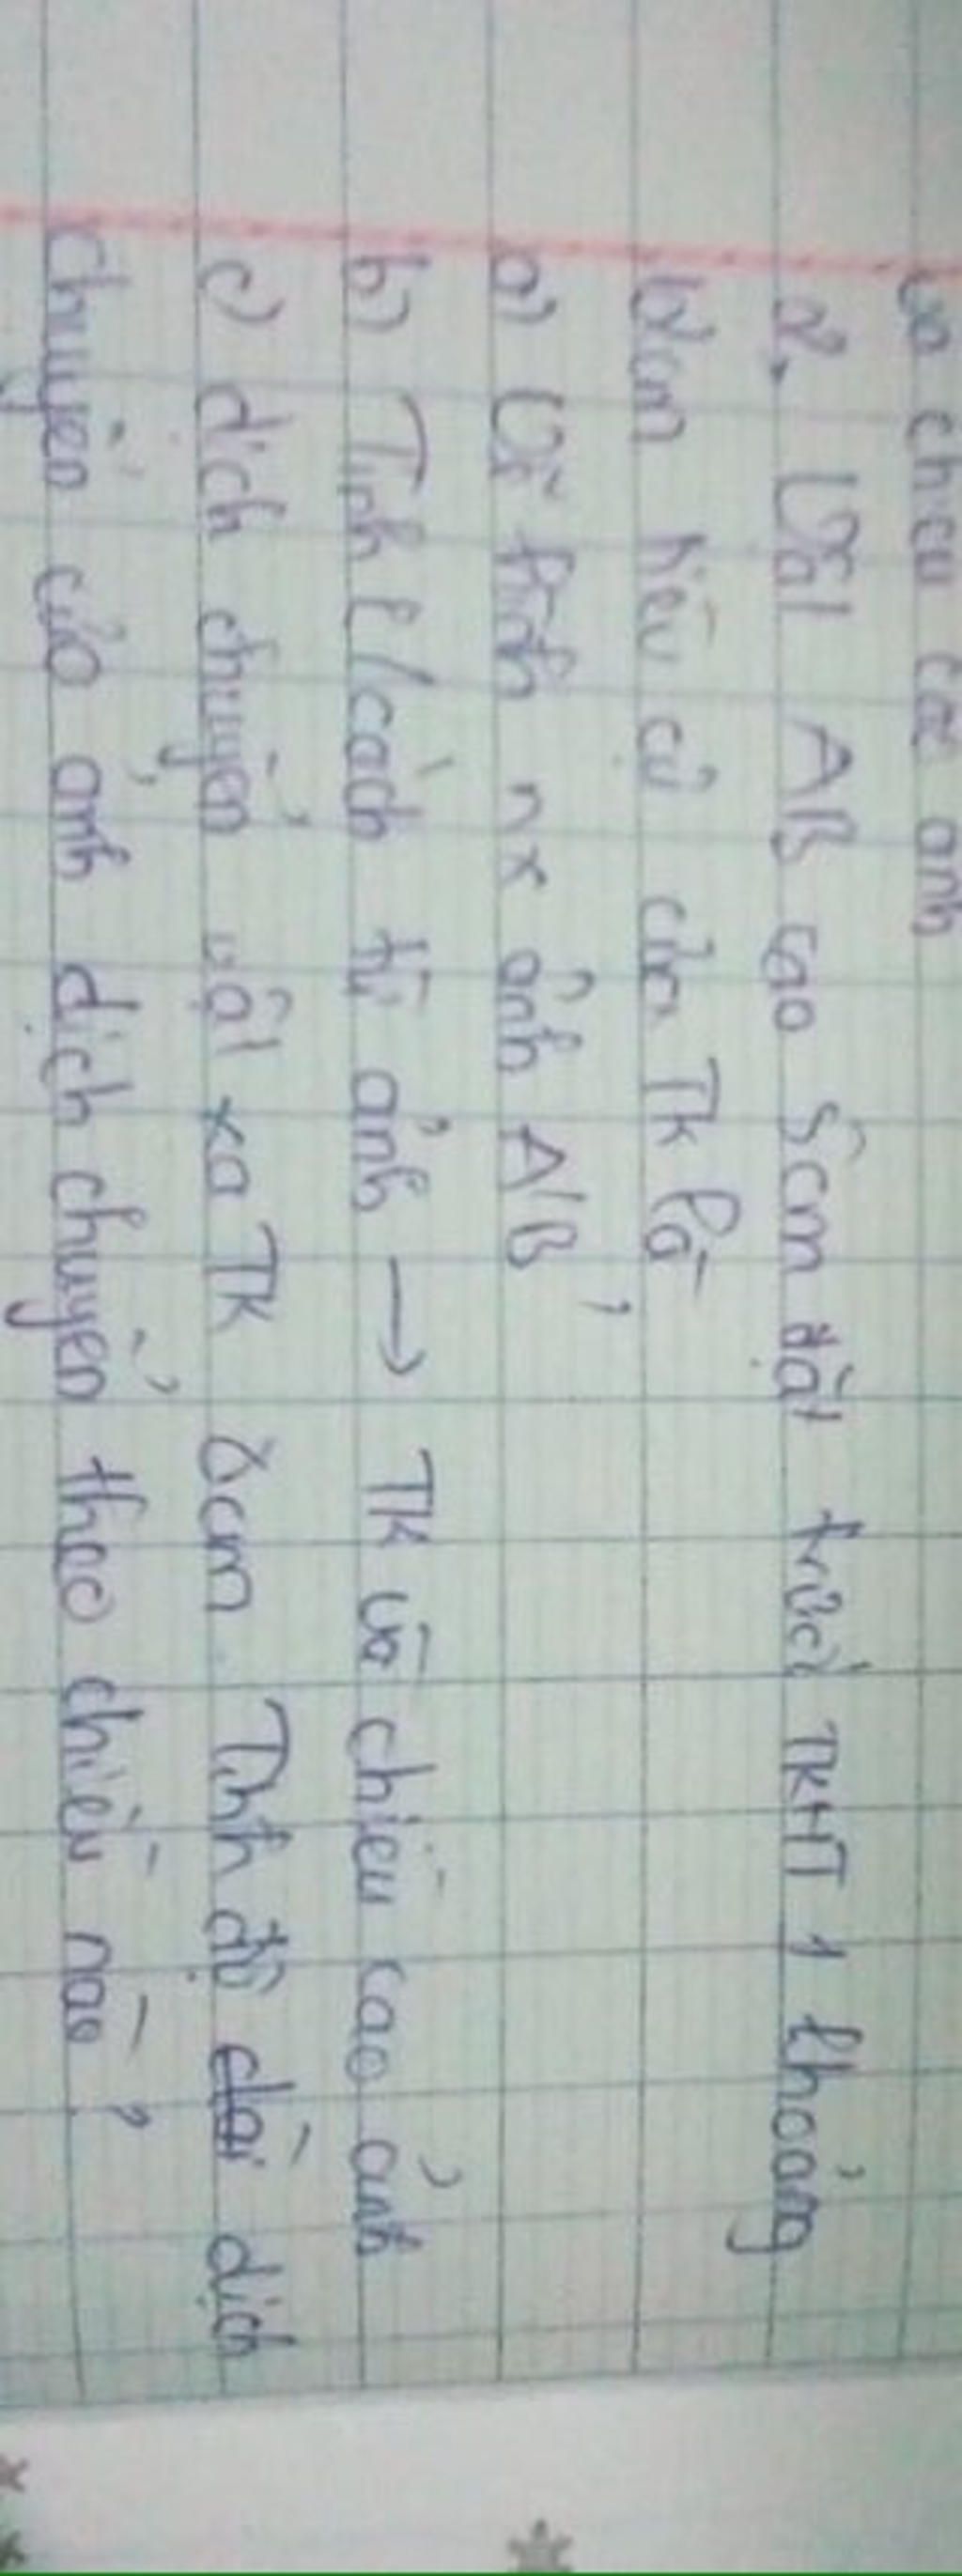 và chiều cao ảnh
2. Vật AB cao 5cm đặt trước TKHT 1 khoảng
12cm tiêu cự của TK là
a) Vẽ hình nx ảnh A'B'
b) Tính k/cách từ ảnh → TK và chiều cao ảnh
c) dịch chuyển vật xa TK 2cm. Tính độ dịch
chuyển của ảnh dịch chuyển theo chiều nào?